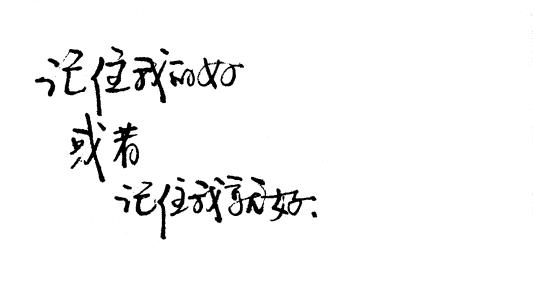 记住我的好
或者
记住我就好.